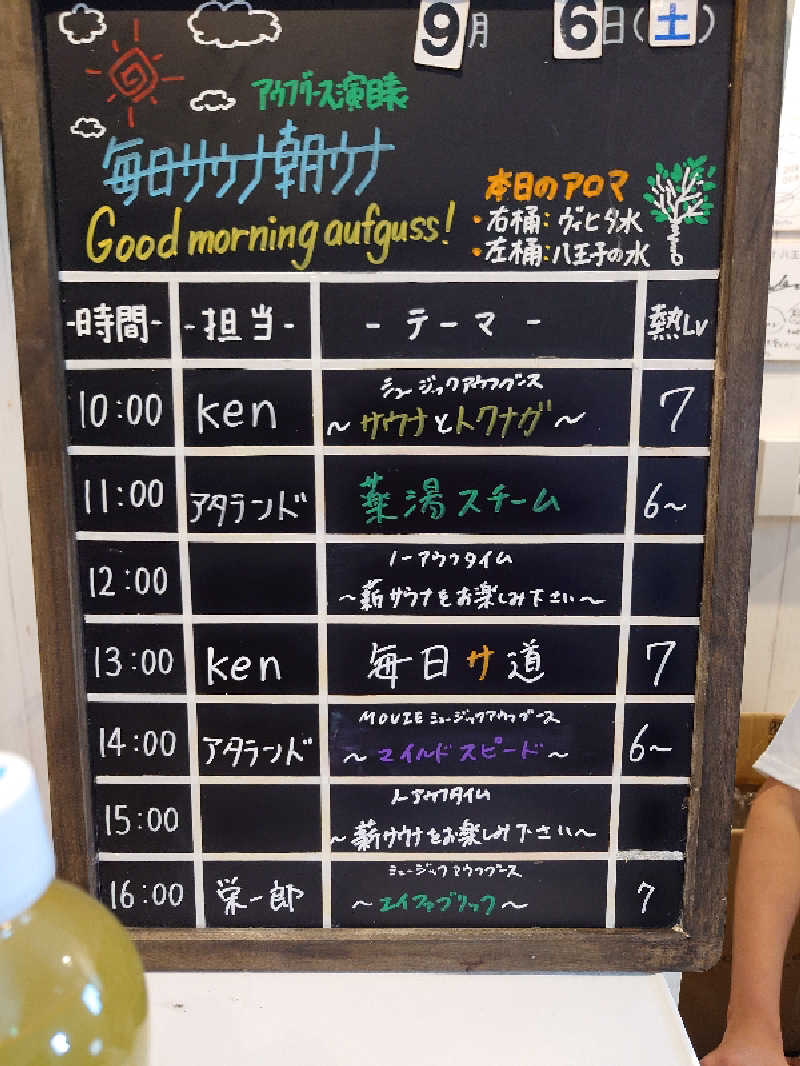 9月 6日(土)
アウフグース演目表
毎日サウナ朝ウナ
Good morning aufguss!
本日のアロマ
・右桶:ヴィヒタ水
・左桶:八王子の水
-時間- -担当- -テーマ- 熱Lv
ミュージックアウフグース
10:00 ken ~サウナとトクナガ~ 7
11:00 アタランド 薬湯スチーム 6~
ノーアウフタイム
12:00 ~薪サウナをお楽しみ下さい~
13:00 ken 毎日サ道 7
MOVIEミュージックアウフグース
14:00 アタランド ~マイルドスピード~ 6~
ノーアウフタイム
15:00 ~薪サウナをお楽しみ下さい~
ミュージックアウフグース
16:00 栄一郎 ~エイファブリック~ 7